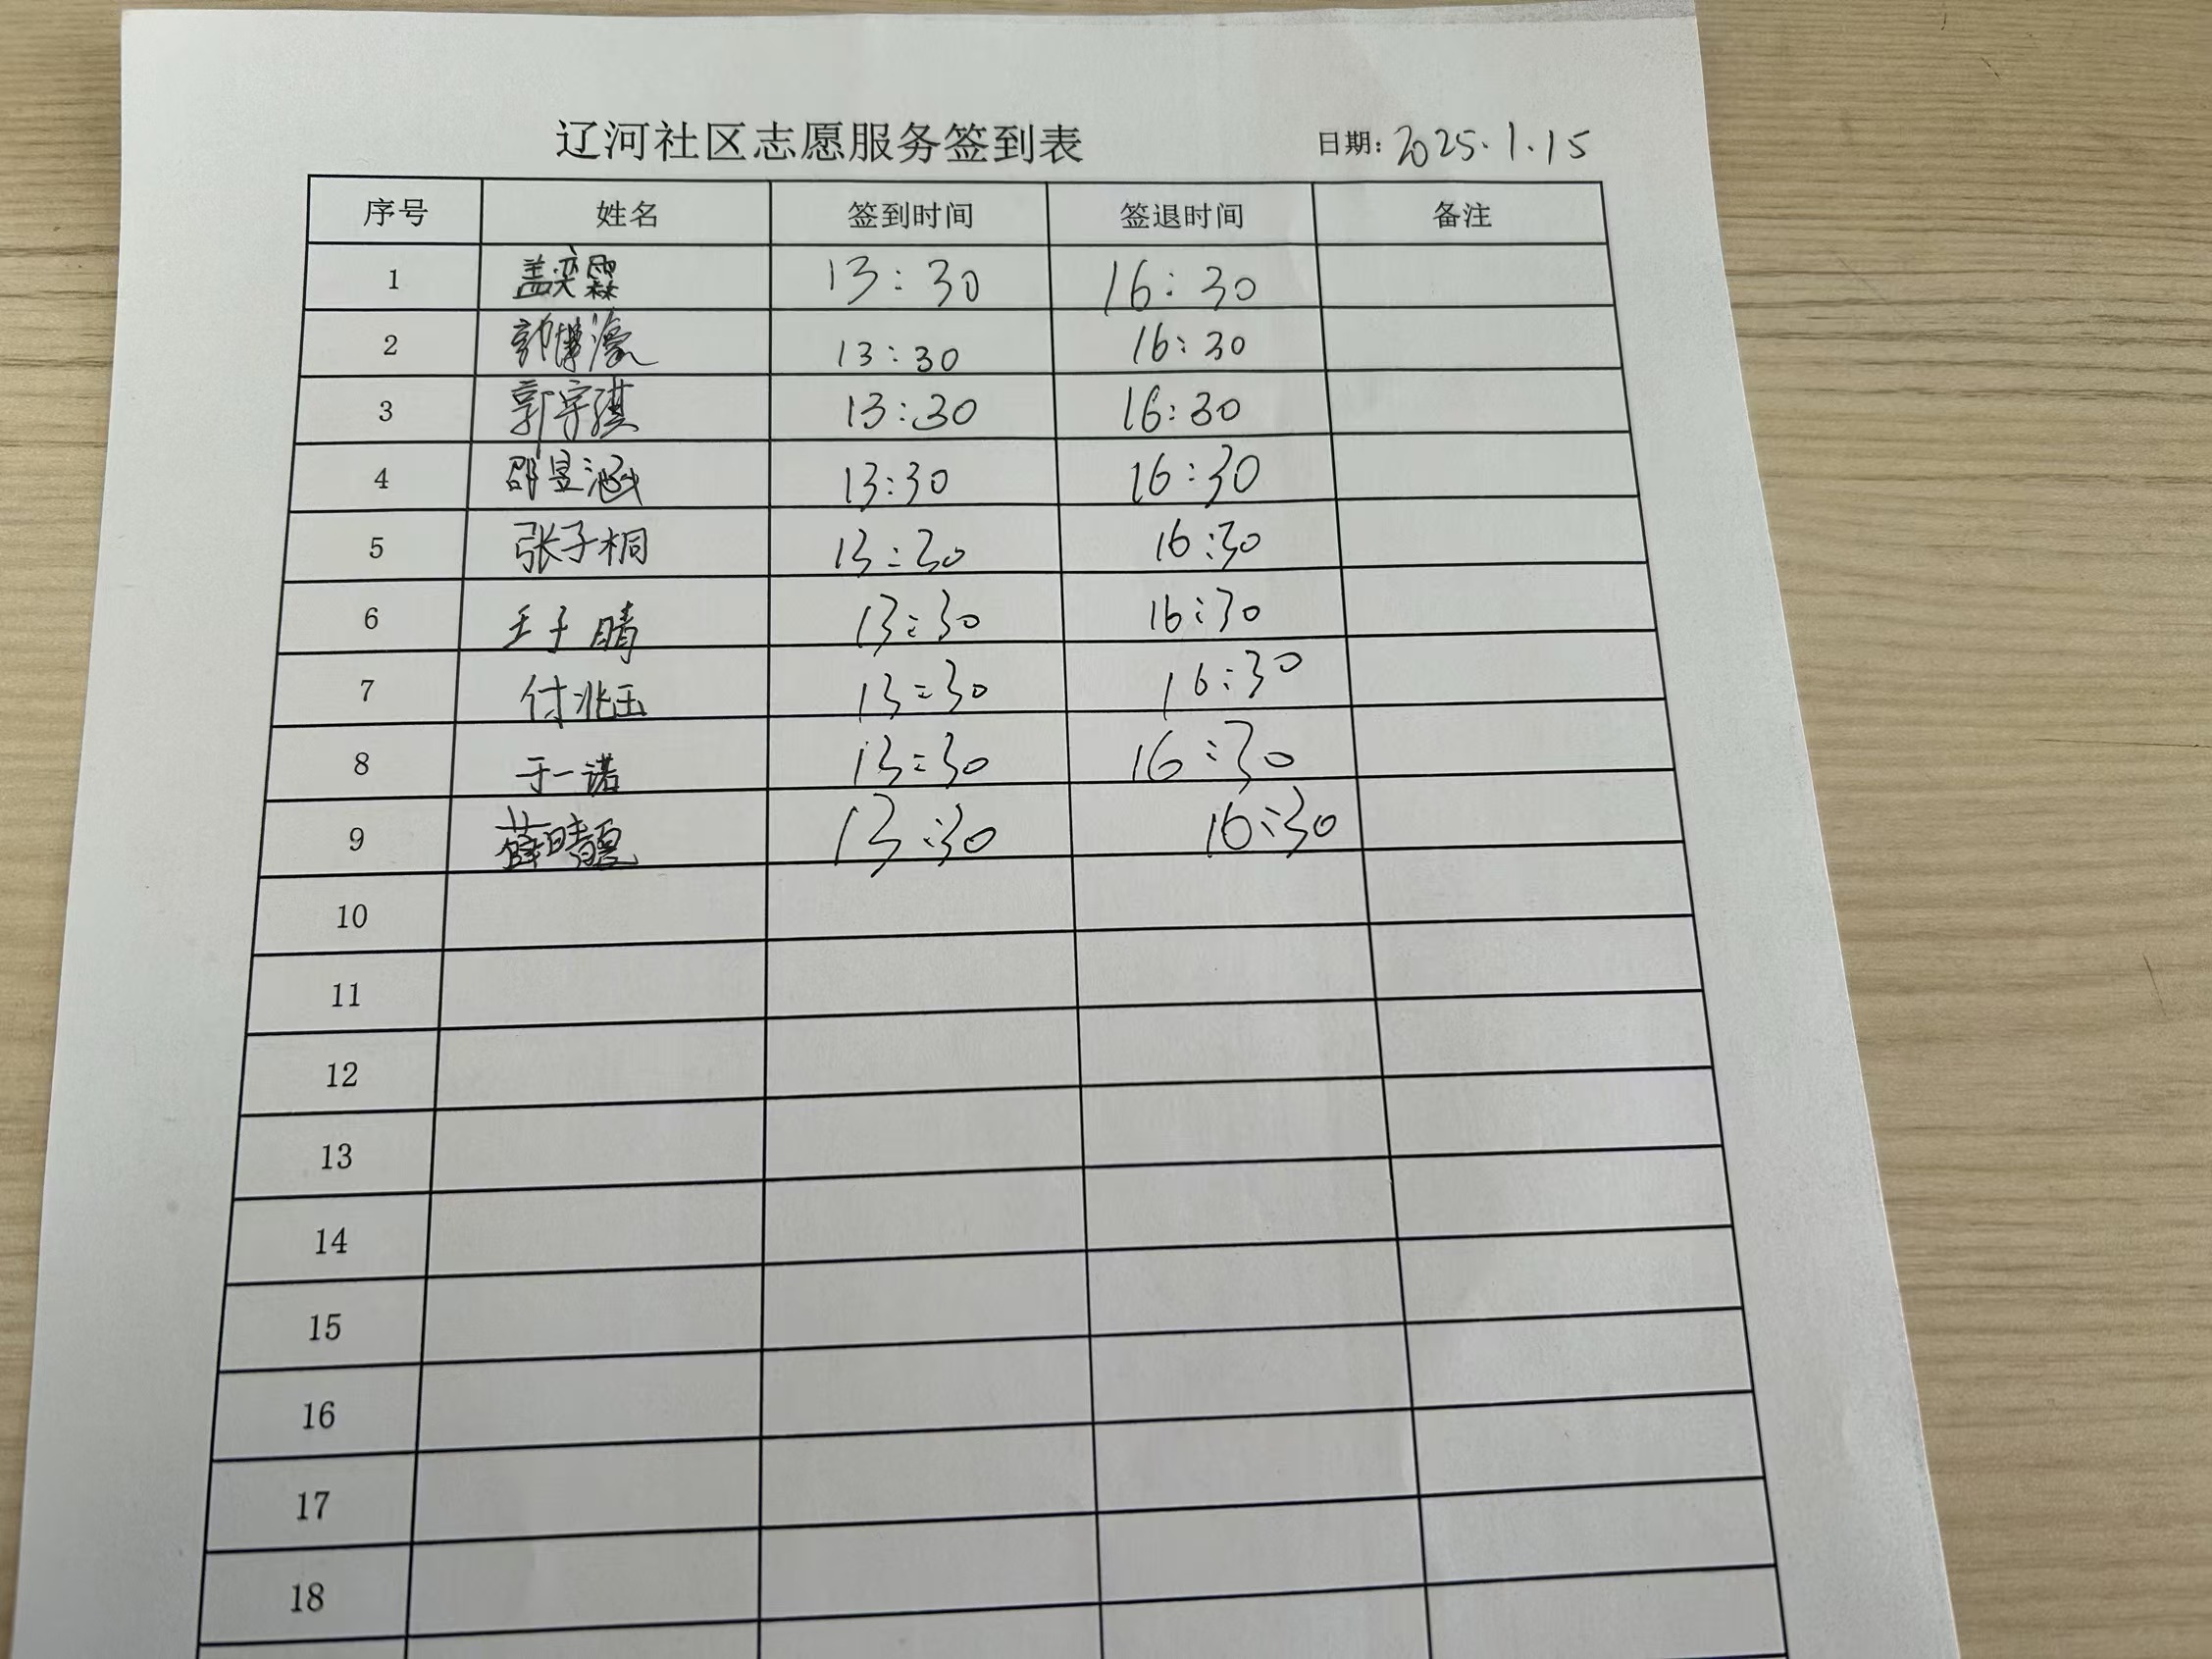 辽河社区志愿服务签到表 日期: 2025.1.15
序号 姓名 签到时间 签退时间 备注
1 盖奕霖 13:30 16:30
2 郭博濠 13:30 16:30
3 郭宇琪 13:30 16:30
4 邵昱涵 13:30 16:30
5 张子桐 13:30 16:30
6 王子晴 13:30 16:30
7 付兆玉 13:30 16:30
8 于一诺 13:30 16:30
9 薛晴 13:30 16:30
10
11
12
13
14
15
16
17
18